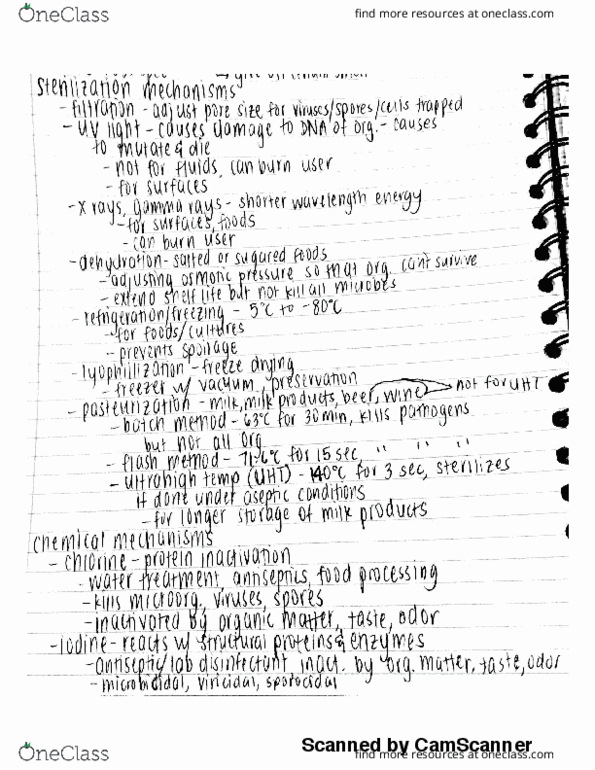 OneClass
find more resources at oneclass.com
sterilization mechanisms
- filtration - adjust pore size for viruses/spores/cells trapped
- UV light - causes damage to DNA of org. - causes
to mutate & die
- not for fluids, can burn user
- for surfaces
- X rays, gamma rays - shorter wavelength energy
- for surfaces, foods
- can burn user
- dehydration - salted or sugared foods
- adjusting osmotic pressure so that org. can't survive
- extend shelf life but not kill all microbes
- refrigeration/freezing - 5°C to -80°C
- for foods/cultures
- prevents spoilage
- lyophilization - freeze drying
- freezer w/ vacuum, preservation
- pasteurization - milk, milk products, beer, wine not for UHT
- batch method - 63°C for 30 min, kills pathogens
but not all org
- flash method - 71.6°C for 15 sec, " " " "
- ultrahigh temp (UHT) - 140°C for 3 sec, sterilizes
if done under aseptic conditions
- for longer storage of milk products
chemical mechanisms
- chlorine - protein inactivation
- water treatment, antiseptics, food processing
- kills microorg, viruses, spores
- inactivated by organic matter, taste, odor
- iodine - reacts w/ structural proteins & enzymes
- antiseptic/lab disinfectant inact. by org. matter, taste, odor
- microbicidal, viricidal, sporocidal
Scanned by CamScanner
OneClass
find more resources at oneclass.com